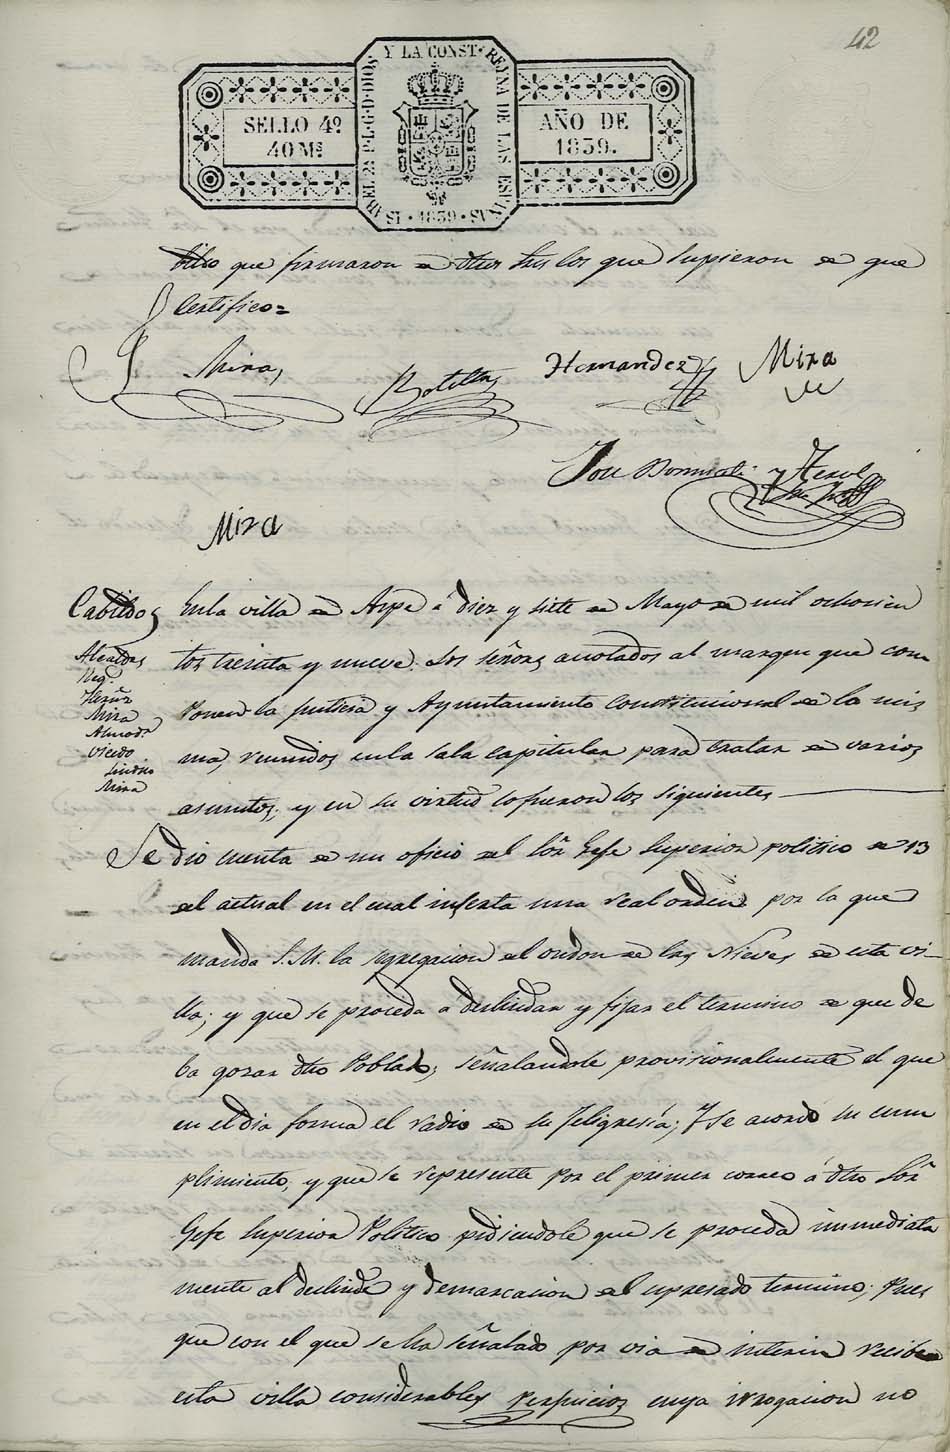 42
Y LA CONST. REYNA DE LAS ESPAÑAS
ISABEL 2ª P.L.G.D.DIOS
SELLO 4º
40 Mˢ
AÑO DE
1839.
1839
bildo que firmaron de dhos Sres los que supieron de que
Certifico=
Mira
Botella
Hernandez
Mira
Jose Bonmati y Herol
Mira
Cabildo
Alcaldes
Mira
Almodr
Oficdo
Mira
En la villa de Aspe á diez y siete de Mayo de mil ochocien
tos treinta y nueve. Los señores anotados al margen que com
ponen la justicia y Ayuntamiento constitucional de la mis
ma, reunidos en la sala capitular para tratar de varios
asuntos, y en su virtud lo fueron los siguientes
Se dio cuenta de un oficio del Sor Gefe Superior politico de 13
del actual en el cual inserta una real orden por la que
manda S.M. la segregacion del ondon de las Nieves de esta vi-
lla; y que se proceda a deslindar y fijar el termino de que de
ba gozar dho Poblado, señalandole provisionalmente el que
en el dia forma el radio de su feligresía; Y se acordó su cum
plimiento, y que se represente por el primer correo á dho Sor
Gefe Superior Politico pidiendole que se proceda immediata
mente al deslinde y demarcacion del espresado termino, Pues
que con el que se ha señalado por via de interin recibe
esta villa considerables perjuicios cuya irrogacion no